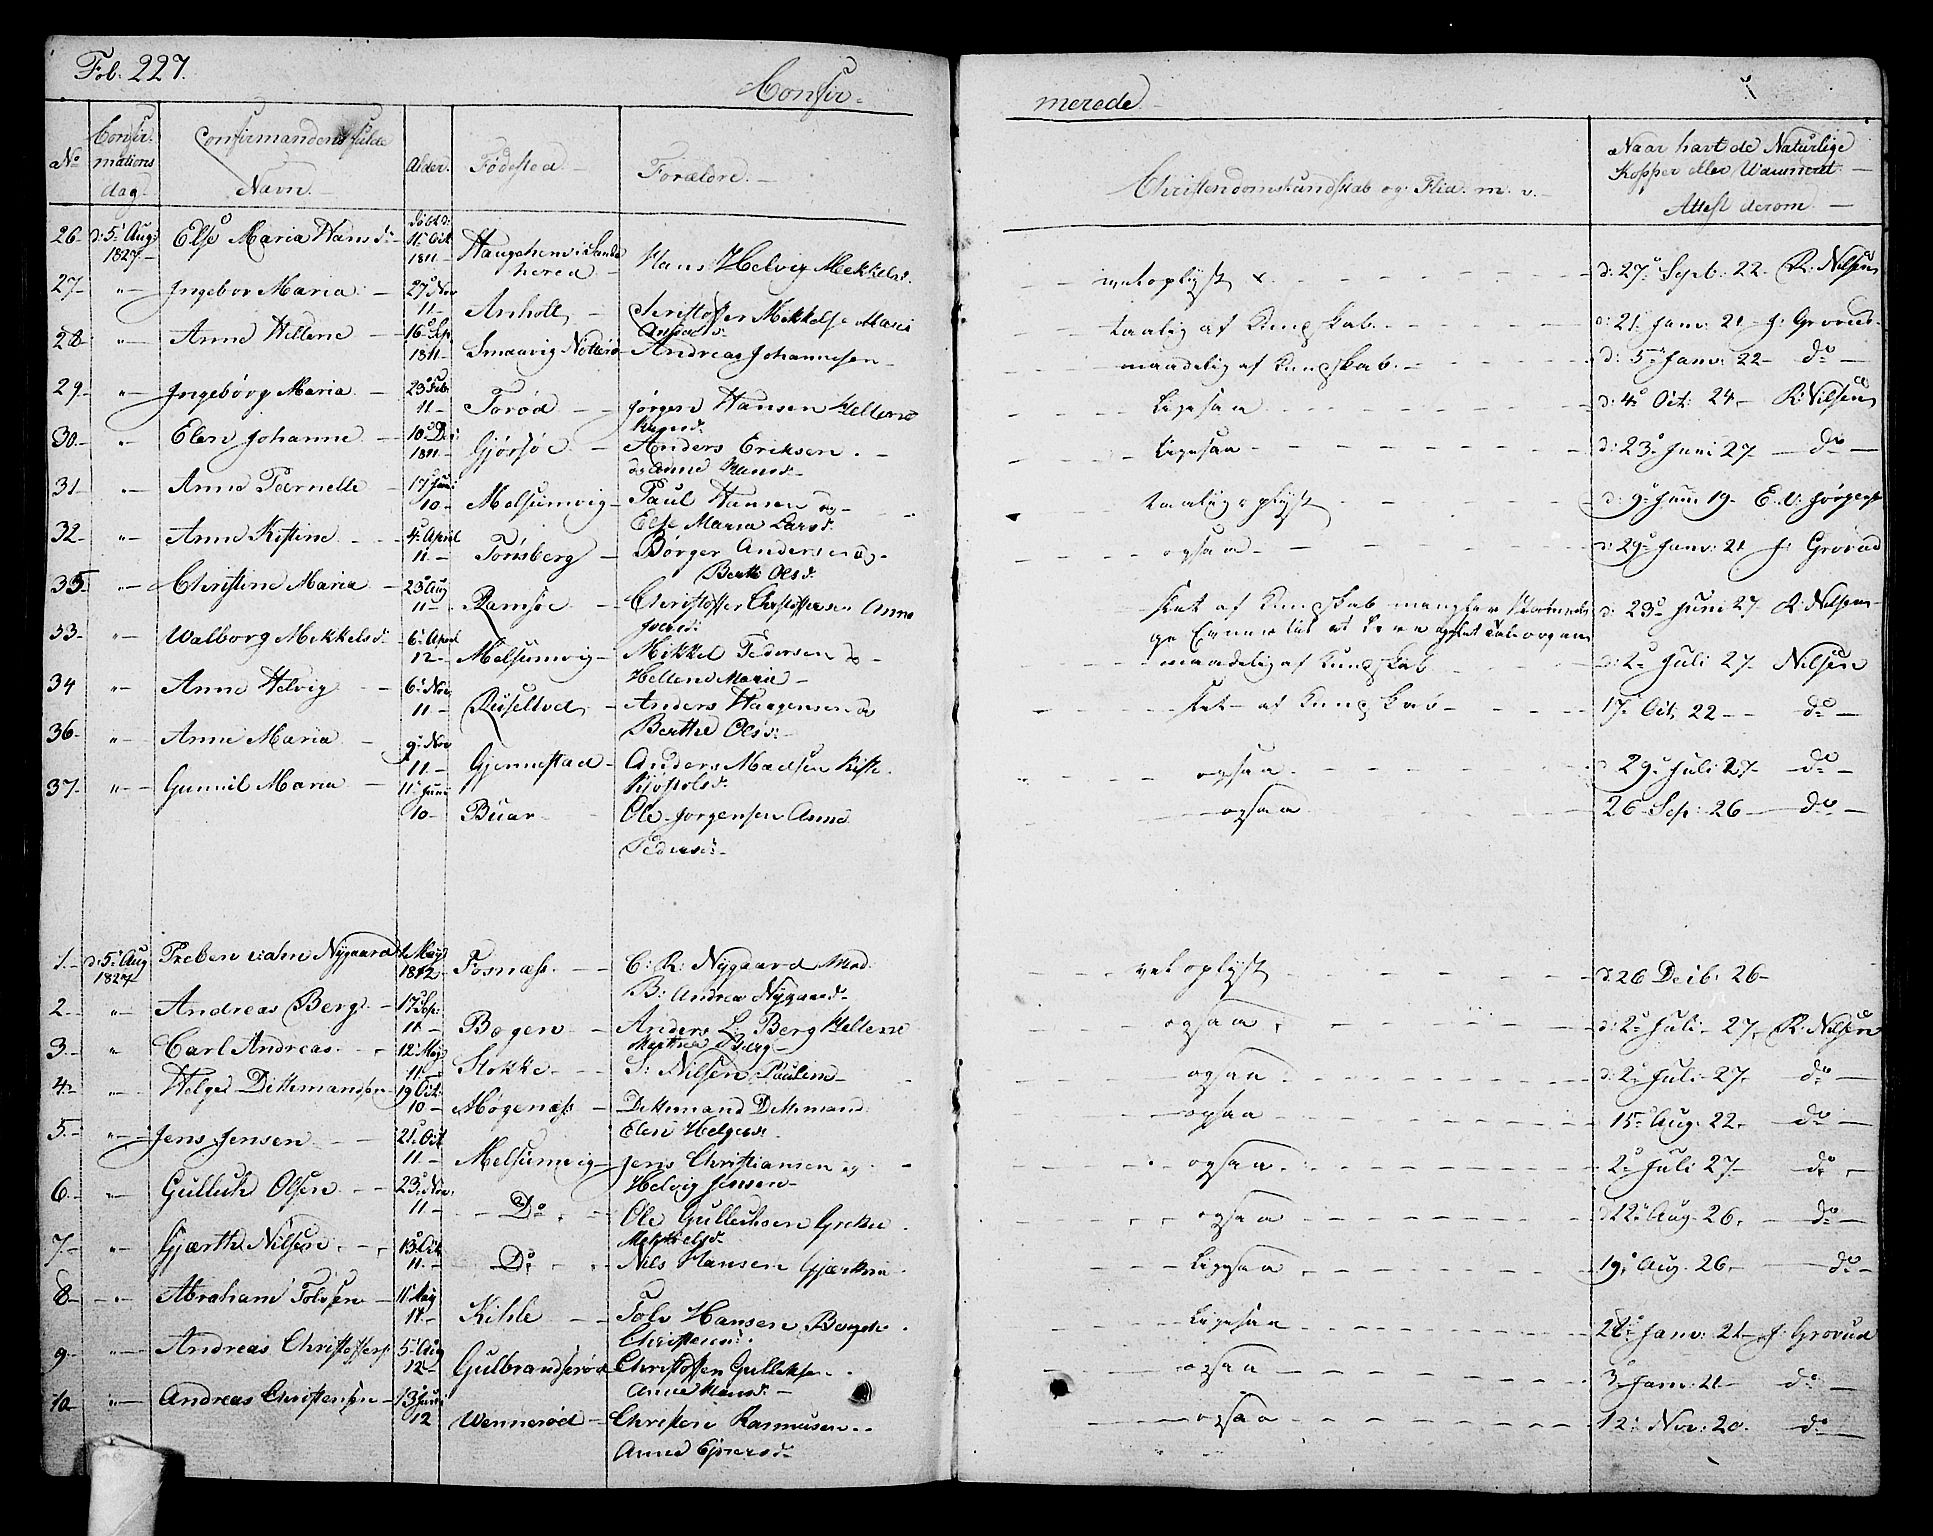 Fol. 227.
Confir-
merede.
No
Confir-
mations
dag.
Confirmandens fulde
Navn.
Alder.
Fødested.
Forældre.
Christendomskundskab og Flid. m. v.
Naar havt de Naturlige
Kopper eller Vaccineret
Attest derom.
26. d: 5t Aug: 1827 Else Maria Hans d: født d: 11 Oct 1811 Hans Helvig Mekkelsd. vel oplyst x d: 27 Sept: 22. R: Nilsen
27. " Ingebor Maria 27 Nov 11 Anholt Mikkelse Maria taalig af Kundskab d: 21 Janv: 21 J: Grorud
28 " Anne Hellene 16 Sep 1811 Smaavig Nøtterø Andreas Johannesen maadelig af Kundskab d: 5 Janv: 22 do
29. " Ingebørg Maria 23 Feb: 11 Torød Jørgen Hansen Hellene Hansd: ligesaa d: 4 Oct: 24 R: Nilsen
30. " Elen Johanne 10 De: 1811 Gjørsøe Anders Eriksen og Anne Hansd: ligesaa d: 23 Juni 27 do
31 " Anne Pernelle 17 Juni 10 Melsumvig Paul Hansen og Else Maria Larsd: taalig oplyst d: 9 19 E. v: Jørgens
32. " Anne Kistine 4 April 11 Tønsberg Børger Andersen og Berthe Olsd: ogsaa d: 29 Janv: 21 J: Grorud
35 " Christine Maria 23 Aug 11 Ramsøe Christoffer Christoffersen Anne slet af Kundskab mangler d: 23 Juni 27. R: Nilsen
33 " Walborg Mekkelsd: 6 April 12 Melsumvig Mikkel Pedersen og Hellene Maria maadelig af Kundskab d: 2 Juli 27 Nilsen
34 " Anne Helvig 6 Nov 11 Anders Haagensen og Berthe Olsd: slet af Kundskab 17 Oct, 22 do
36. " Anne Maria 9 Nov 11 Gjennestad Anders Madsen Kiste ogsaa 29 Juli 27 do
37. " Gunnil Maria 11 Juni 10 Buar Ole Jørgensen Anne Pedersd: ogsaa 26 Sep: 26 do
1. d: 5 Aug 1827 Preben Nygaard 1 May 1812 Fosnæss C. R: Nygaard Mad. B: Andrea Nygaard vel oplyst d: 26 Decb: 26
2. " Andreas Berg 17 Sep: 11 Bogen Anders L: Berg Hellene Marthea Berg ogsaa d: 2 Juli 27, R: Nilsen
3. " Carl Andreas 12 May 11 Stokke S: Nilsen Pauline ogsaa d: 2 Juli 27, do
4. " Helge Dittmandsen 19 Oct: 10 Møgenæs Dittmand Dittmand: Elen Helgesd: ogsaa 15 Aug: 22, do
5. " Jens Jensen 21 Oct 11 Melsumvig Jens Christiansen og Helvig Jensen ogsaa 2 Juli 27 do
6. " Gulluk Olsen 23 Nov. 11 Do Ole Gulluksen Grethe Mekkelsd: ogsaa d 12 Aug. 26, do
7. " Gjærth Nilsen 13 Oct 11 Do Nils Hansen ligesaa 19, Aug. 26, do
8 " Abraham Tolvsen 11 May 11 Kihle Tolv Hansen Christensd: ligesaa Janv: 21 J: Grorud
9. " Andreas Christoffers: 5 Aug 12 Gulbrandsrød Christoffer Gulliksen Anne Hansd: ogsaa 3 Janv: 21 do
10 " Andreas Christensen 13 Juni 12 Wennerød Christen Rasmusen Anne Ejnersd: ogsaa 12 Nov: 20. do